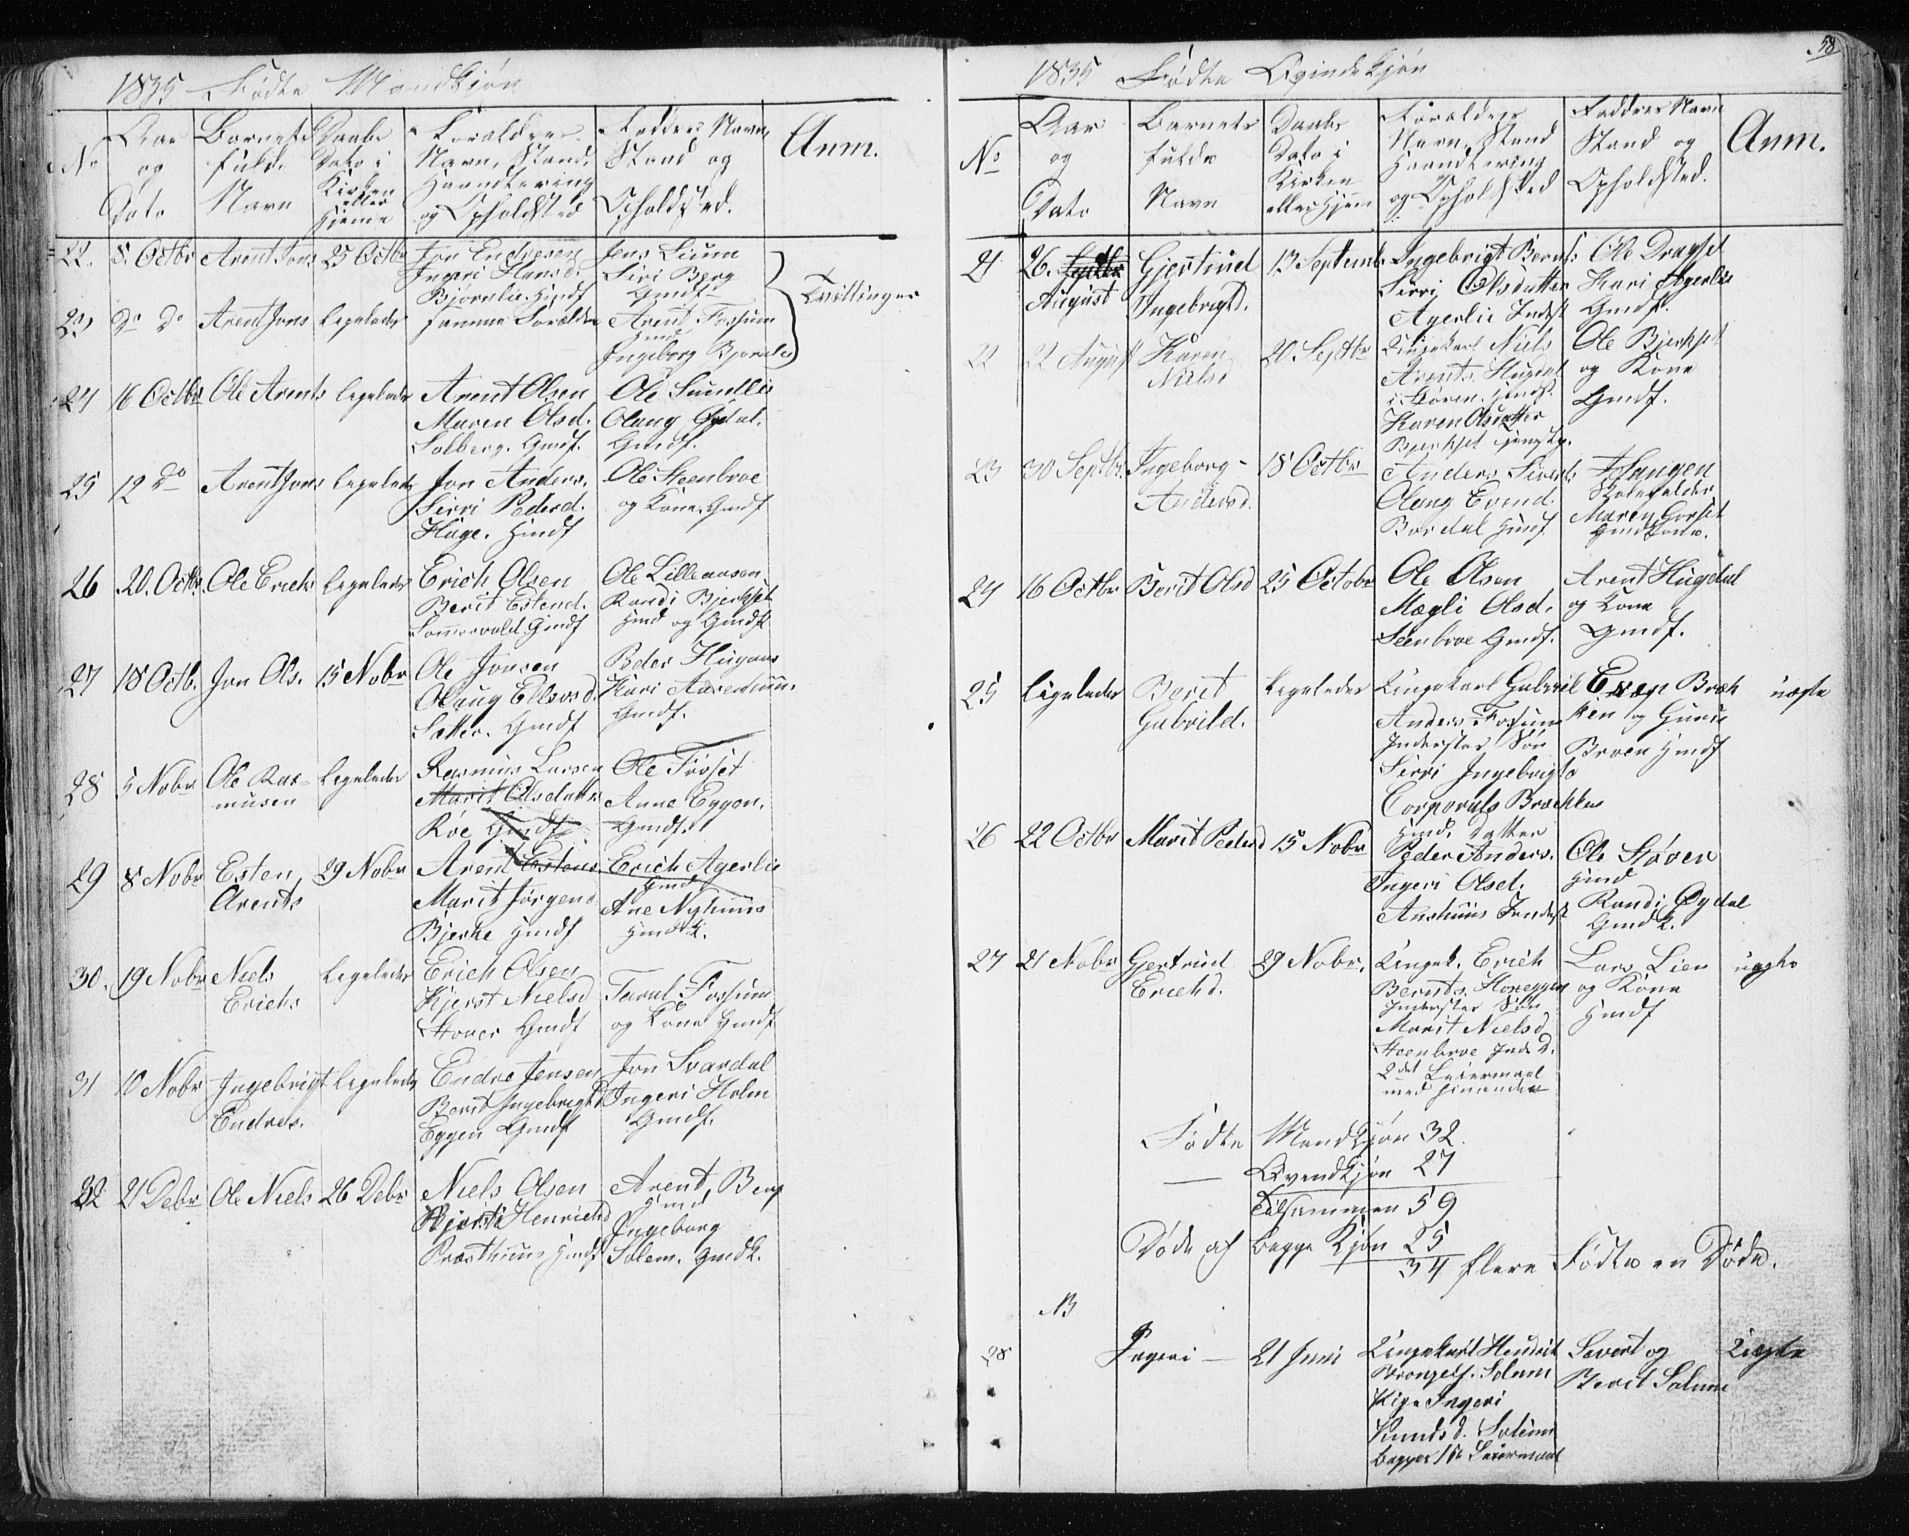 1835 Fødte Mandkjøn
No
Aar og Dato
Barnets fulde Navn
Daabs Dato i Kirken eller Hjeme
Forældres Navn, Stand, Haandtering og Opholdsted
Faddres Navn, Stand og Opholdsted.
Anm.
22. 8. Octbr Arent Jons 25 Octbr
Jon Endresen
Ingeri Hansd.
Bjørnlie Hmdf
Jens Lium
Siri Berg
Gmdf
Tvillinger
23 do do Arent Jons Ligeledes
samme Forældre
Arent Fossum
Hmd
Ingeborg Bjørnlie
24 16 Octbr Ole Arents Ligeledes
Arent Olsen
Maren Olsd.
Solberg. Gmdf.
Ole Sundlie
Olaug Øydal.
Gmdf.
25 12 do Arent Jons Ligeledes
Jon Anders.
Sirri Pedersd.
Hage. Hmdf
Ole Steenbroe
og Kone. Gmdf
26 20. Octbr. Ole Erichs Ligeledes
Erich Olsen
Berit Estend.
Sommervold Gmdf
Ole Lilleaasen
Randi Bjerkset
Hmd og Gmdk
27 18 Octb. Jon Ols. 15 Nobr
Ole Jonsen
Olaug Ellevsd.
Gmdf
Peder Hugaas
Kari
Gmdf.
28 5 Nobr Ole Rasmusen Ligeledes
Rasmus Larsen
Marit Olsdatter
Roe Gmdf
Ole Frøset
Anne Eggen.
Gmdf.
29 8 Nobr Esten Arents 29 Nobr
Arent Estens
Marit Jørgens
Bjerke Hmdf
Erich Agerlie
Hmd
Ane Nyhuus
Hmdk.
30. 19 Nobr Niels Erichs Ligeledes
Erich Olsen
Kjerst Nielsd
Gmdf
Fossum
og Kone Gmdf
31 10 Nobr Ingebrigt Endres. Ligeledes
Endre Jensen
Berit Ingebrigtsd
Eggen Gmdf
Jon Svardal
Ingeri Holm
Gmdf.
32 21 Debr Ole Niels 26 Debr
Niels Olsen
Kjersti Henrichd
Præsthuus Hmdf
Arent Berg
Hmd
Ingeborg
Solem. Gmdk.
58
1835 Fødte Qvindekjøn
No
Aar og Dato
Barnets fulde Navn
Daabs Dato i Kirken eller Hjem
Forældres Navn, Stand Haandtering og Opholdsted
Faddres Navn Stand og Opholdsted.
Anm.
21 26. August Gjertrud Ingebrigtd. 13 Septemb.
Ingebrigt Bernts.
Sirri Olsdatter
Agerlie Indest
Ole Dragset
Kari Agerlie
Gmdf.
22 22 August Karen Niels. 20 Septbr
Ungekarl Niels
Arents. Hugdal
i Støren. Hmdf.
Karen Olsdatter
Bjerkset
Ole Bjerkset
og Kone
Gmdf.
23 30 Septbr. Ingeborg Andersd. 18 Octbr
Anders Sivert.
Olaug Evind.
Bordal Hmdf
Skoleholder
Maren
Gmdkone.
24 16 Octbr Berit Olsd 25 Octobr
Ole Olsen
Magli Olsd.
Steenbroe Gmdf.
Arent Hugdal
og Kone
Gmdf.
25 Ligeledes Berit Gabrield. Ligeledes
Ungekarl Gabriel
Anders. Fossum
Indersters Søn
Sirri Ingebrigtsd
Corporals Brækken
Hmds Datter
Even Brækken og Guru
Broen Hmdf
uægte
26 22 Octbr Marit Pedersd 15 Nobr
Peder Anders.
Ingeri Olsd.
Aushuus Indest
Ole Støver
Hmd
Randi Øydal
Gmdk.
27 21 Nobr Gjertrud Erichd. 29 Nobr.
Ungek. Erich
Bernts. Honeggen
Indersters Søn
Marit Nielsd
Steenbroe Inds D.
2det Leiermaal
med hinanden
Lars Lien
og Kone
Hmdf
uægte
Fødte Mandkjøn 32.
— Qvendkjøn 27
Tilsammen 59
Døde af begge Kjøn 25
34 flere Fødte en Døde.
NB
28 Ingeri — 21 Juni
Ungekarl Hendrik
Solum
Pige Ingeri
Knuds d. Solum
begges 1ste Leiermaal
Sivert og
Berit Solum
Uægte